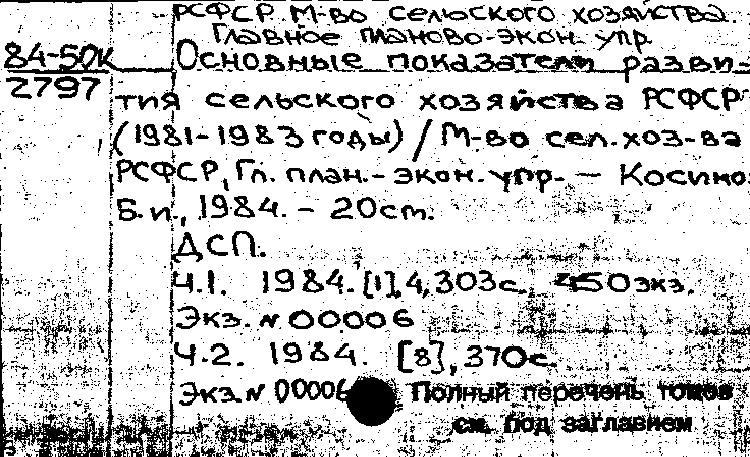 РСФСР. М-во сельского хозяйства.
Главное планово-экон. упр.
84-50к
2797
Основные показатели разви-
тия сельского хозяйства РСФСР
(1981-1983 годы) / М-во сел.хоз-ва
РСФСР, Гл. план.-экон. упр. — Косино:
Б.и., 1984. - 20см.
ДСП.
Ч.1. 1984. [1], 4, 303с. 450экз.
Экз. № 00006
Ч.2. 1984. [8], 370с.
Экз. № 00006 Полный перечень томов
см. под заглавием